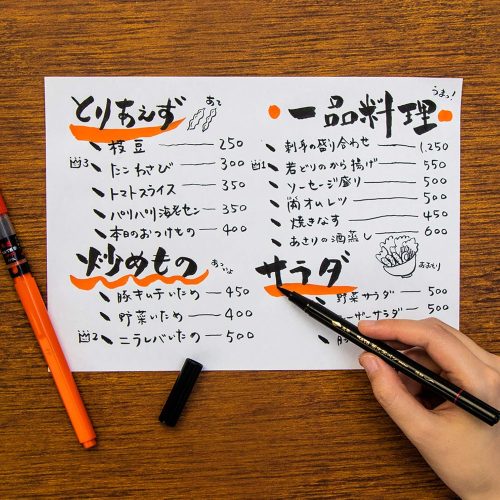 とりあえず
あて
枝豆 250
3 たこわさび 300
トマトスライス 350
パリパリ海老セン 350
本日のおつけもの 400
炒めもの
豚キムチいため 450
野菜いため 400
2 ニラレバいため 500
一品料理
うまっ!
刺身の盛り合わせ 1,250
1 若どりのから揚げ 550
ソーセージ盛り 500
オムレツ 500
焼きなす 450
あさりの酒蒸し 600
サラダ
野菜サラダ 500
ーザーサラダ 500